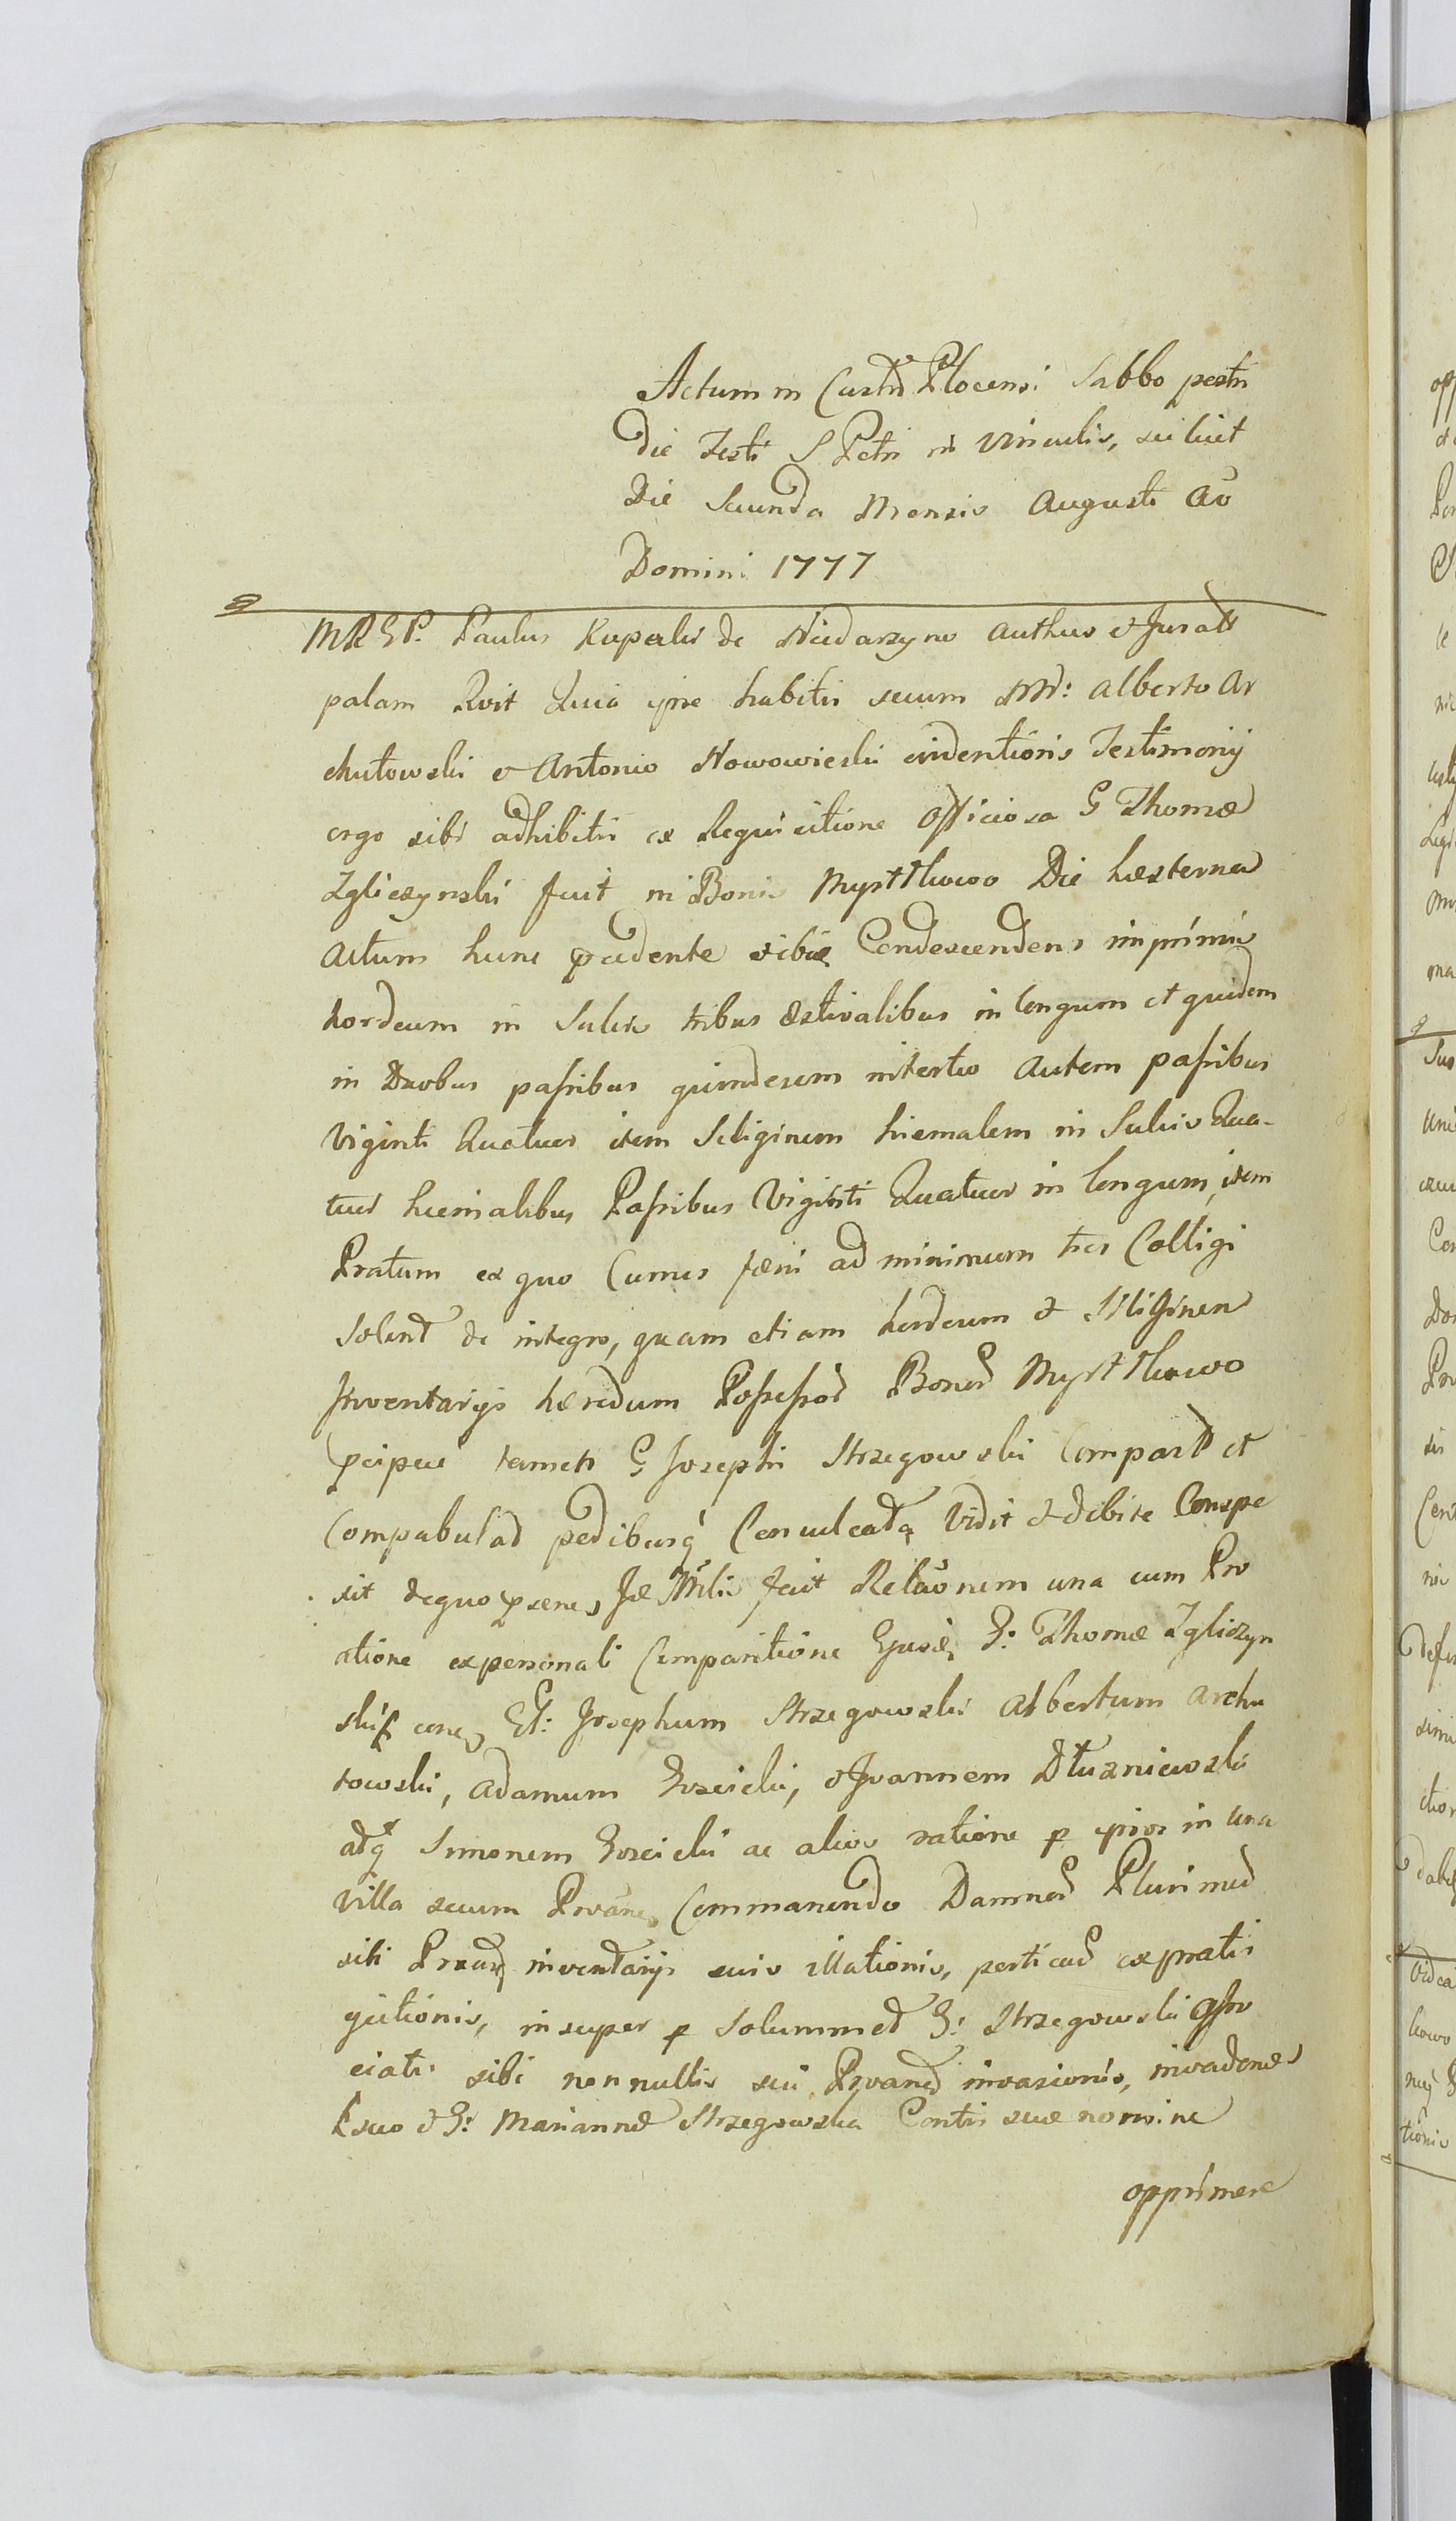 Actum in Castrō Plocensi Sabbo postri
die Festi S Petri in Vinculis, scilicet
Die Secunda Mensis Augusti Aō
Domini 1777
MRGP. Paulus Kuperlis de Niedarzyno Authus & Juratt
palam Rvit Quia ipse habitis secum NN: Alberto Ar
chutowski & Antonio Nowowieski evidentioris Testimonij
ergo sibi adhibitis ex Requisitione Officiosa G Thomæ
Zgliczynski fuit in Bonis Mystkowo Die hesterna
Actum hunc pcedente ibiē Condescendens imprimis
hordeum in Sulcis tribus Æstivalibus in longum et quidem
in Duobus passibus quindecem in tertio Autem passibus
Viginti Quatuor item Siliginem hiemalem in Sulcis Qua-
tuor hiemalibus Passibus Viginti Quatuor in longum, item
Pratum ex quo Cumus fæni ad minimum tres Colligi
Solent de integro, quam etiam hordeum & Siliginem
Inventarijs hæredum Possessor Bonor Mystkowo
pcipue tamen G Josephi Strzegowski Compart et
Compabulat pedibusq Conculcata Vidit & debite Conspe
xit dequo psens Jæ Mlis fecit Relaōnem una cum Pro
atione ex personali Comparitione Ejusd G: Thomæ Zgliczyn
ski cone Gl: Josephum Strzegowski Albertum Archu
towski, Adamum Gościcki, & Joannem Dłuzniewski
adq Simonem Gościcki ac alios ratione p ipsos in una
Villa secum Commanendo Damnor Plurimor
sibi inventarijs suis illationis, perticar ex pratis
insuper p Solummet G: Strzegowski
ciati sibi nonnullis sui invasionis,
suo & G: Mariannæ Strzegowska Contis suæ nomine
opprimere